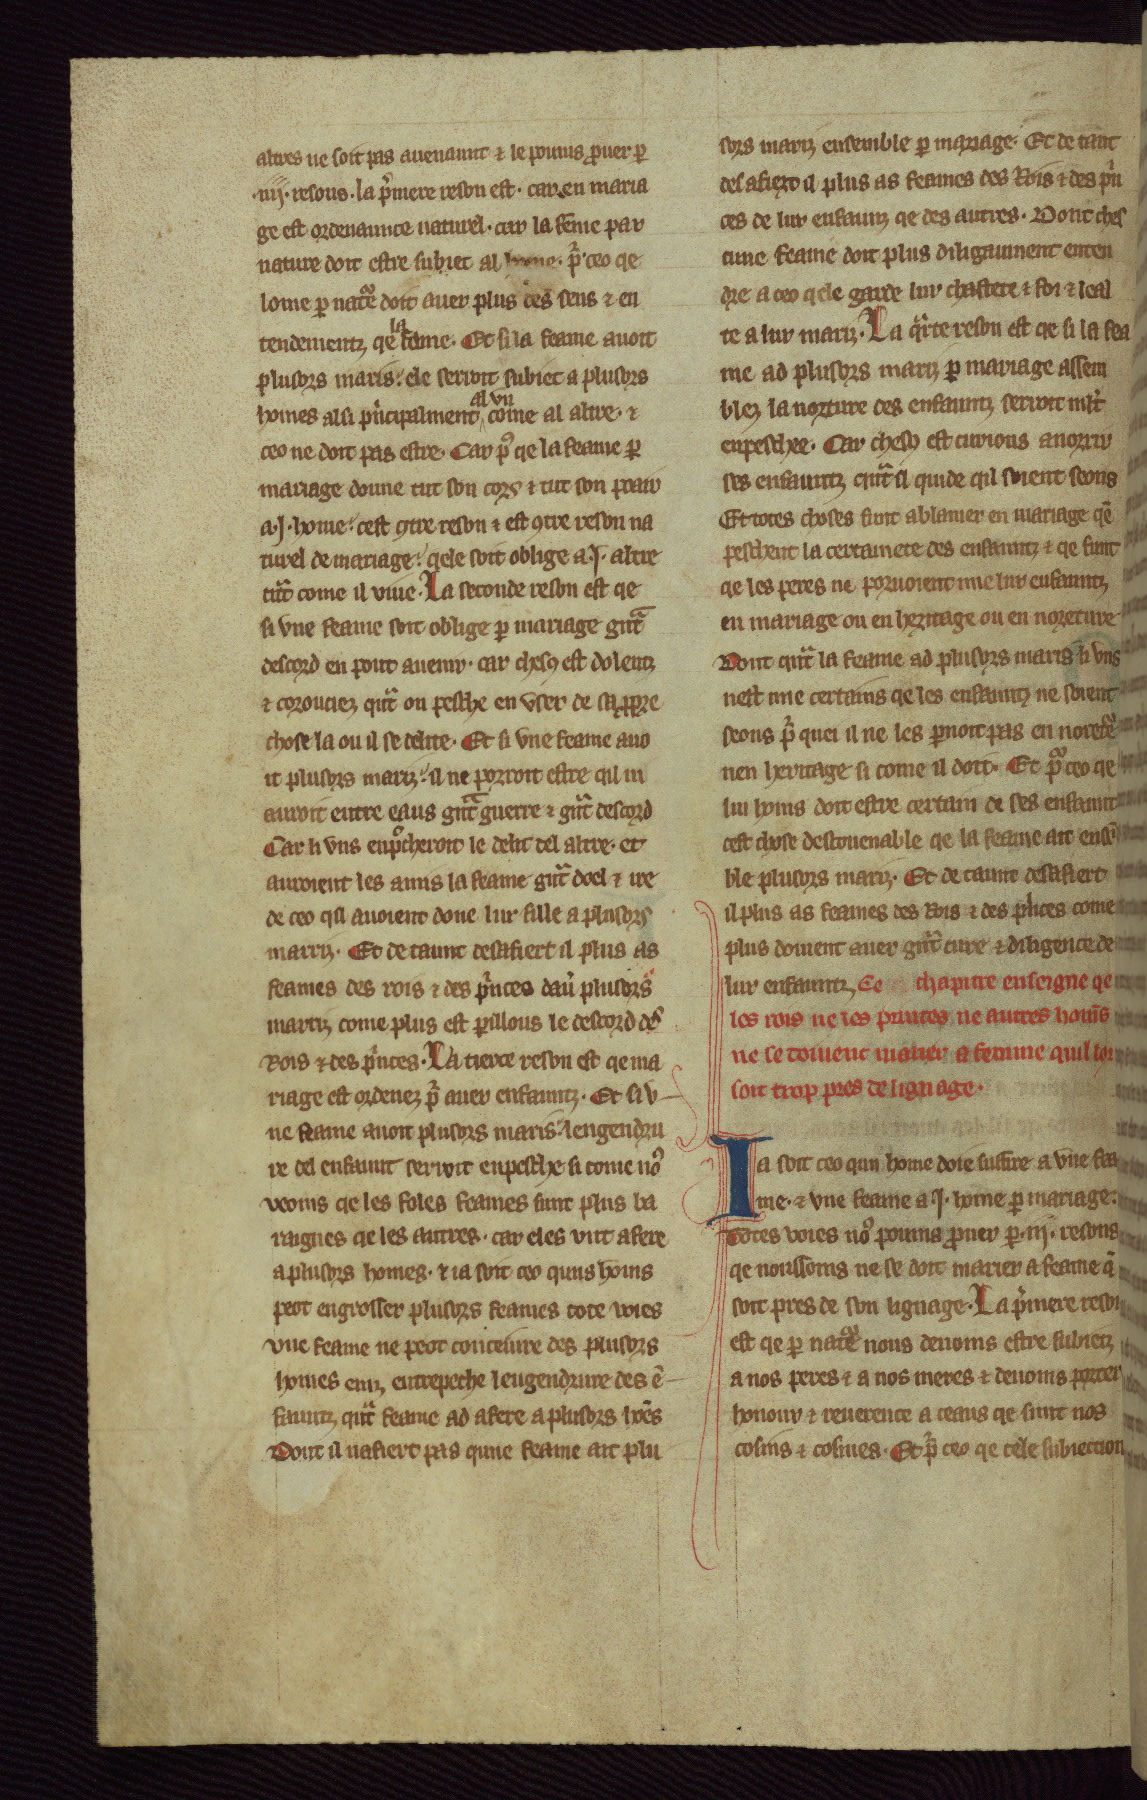 altres ne soit pas auenaunt ⁊ le poums ꝓuer ꝑ
.iiij. resons. la p̃mere reson est. car en maria
ge est ordenaunce naturel. car la feme par
nature doit estre subiet al home. p̃ ceo qe
lome ꝑ natẽ doit auer plus des sens ⁊ en
tendementz qe la feme. Et si la feame auoit
plusors maris: ele serroit subiet a plusors
homes alsi p̃ncipalment al vn come al altre. ⁊
ceo ne doit pas estre. Car pᵒ qe la feame ꝑ
mariage donne tut son cors ⁊ tut son poair
a .I. home: cest ꝯtre reson ⁊ est ꝯtre reson na
turel de mariage: qele soit oblige a .I. altre
tãt come il viue. La seconde reson est qe
si vne feame soit oblige ꝑ mariage gñt
descord en pout auenir. car chesꝯ est dolentz
⁊ coroucieꝫ qñt on pesche en vser de sa ꝓpre
chose la ou il se delite. Et si vne feame auo
it plusors maritz: il ne porroit estre qil ni
auroit entre eaus gñt guerre ⁊ gñt descord
Car li vns enpᵒcheroit le delit del altre. et
auroient les amis la feame gñt doel ⁊ ire
de ceo qil auoient done lur fille a plusors
marriz. Et de taunt desafiert il plus as
feames des rois ⁊ des p̃nces dau̾ plusors
maritz come plus est ꝑillous le descord des
Rois ⁊ des p̃nces. La tierce reson est qe ma
riage est ordeneꝫ p̃ auer enfauntz. Et si v
ne feame auoit plusors maris: lengendru
re del enfaunt serroit enpesche si come noᵒ
veoms qe les foles feames sunt plus ba
raignes qe les autres. car eles vnt afere
a plusors homes. ⁊ ia soit ceo quns homs
peot engrosser plusors feames tote voies
vne feame ne peot conceiure des plusors
homes einz entrepeche lengendrure des ẽ
fauntz qñt feame ad afere a plusors hoẽs
Dont il nafiert pas qune feame ait plu
sors maritz ensemble ꝑ mariage. Et de tant
desafiert il plus as feames des Rois ⁊ des p̃n
ces de lur enfauntz qe des autres. Dont ches
cune feame doit plus diligaument enten
dre a ceo qele garde lur chastete ⁊ foi ⁊ leal
te a lur maritz. La q̃rte reson est qe si la fea
me ad plusors maritz ꝑ mariage assem
bleꝫ la norture des enfauntz serroit ml̃t
enpeschee. Car chesꝯ est curious a norrir
ses enfauntz qñt il quide qil soient seons
Et totes choses sunt a blamer en mariage qẽ
peschent la certainete des enfauntz ⁊ qe sunt
qe les peres ne poruoient mie lur enfauntz
en mariage ou en heritage ou en noreture
Dont qñt la feame ad plusors maris li vns
nest mie certains qe les enfauntz ne soient
seons p̃ quei il ne les ꝑnoit pas en noretẽ
nen heritage si come il doit. Et pᵒ ceo qe
lui homs doit estre certain de ses enfaunt
cest chose descouenable qe la feame ait ensẽ
ble plusors maritz. Et de taunt desafiert
il plus as feames des Rois ⁊ des p̃nces come
plus doiuent auer gñt cure ⁊ diligence de
lur enfauntz. Ce chapitre enseigne qe
les rois ne les princes ne autres homs
ne se doiuent marier a femme quil lor
soit trop pres de lignage.
Ia soit ceo qun home doie suffire a vne fea
me. ⁊ vne feame a .I. home ꝑ mariage:
totes voies noᵒ poums ꝓuer ꝑ .iij. resons
qe nouls homs ne se doit marier a feame q̃
soit pres de son lignage. La p̃mere reson
est qe ꝑ natẽ nous deuoms estre subietz
a nos peres ⁊ a nos meres ⁊ deuoms porter
honour ⁊ reuerence a ceaus qe sunt nos
cosins ⁊ cosines. Et p̃ ceo qe cele subiection